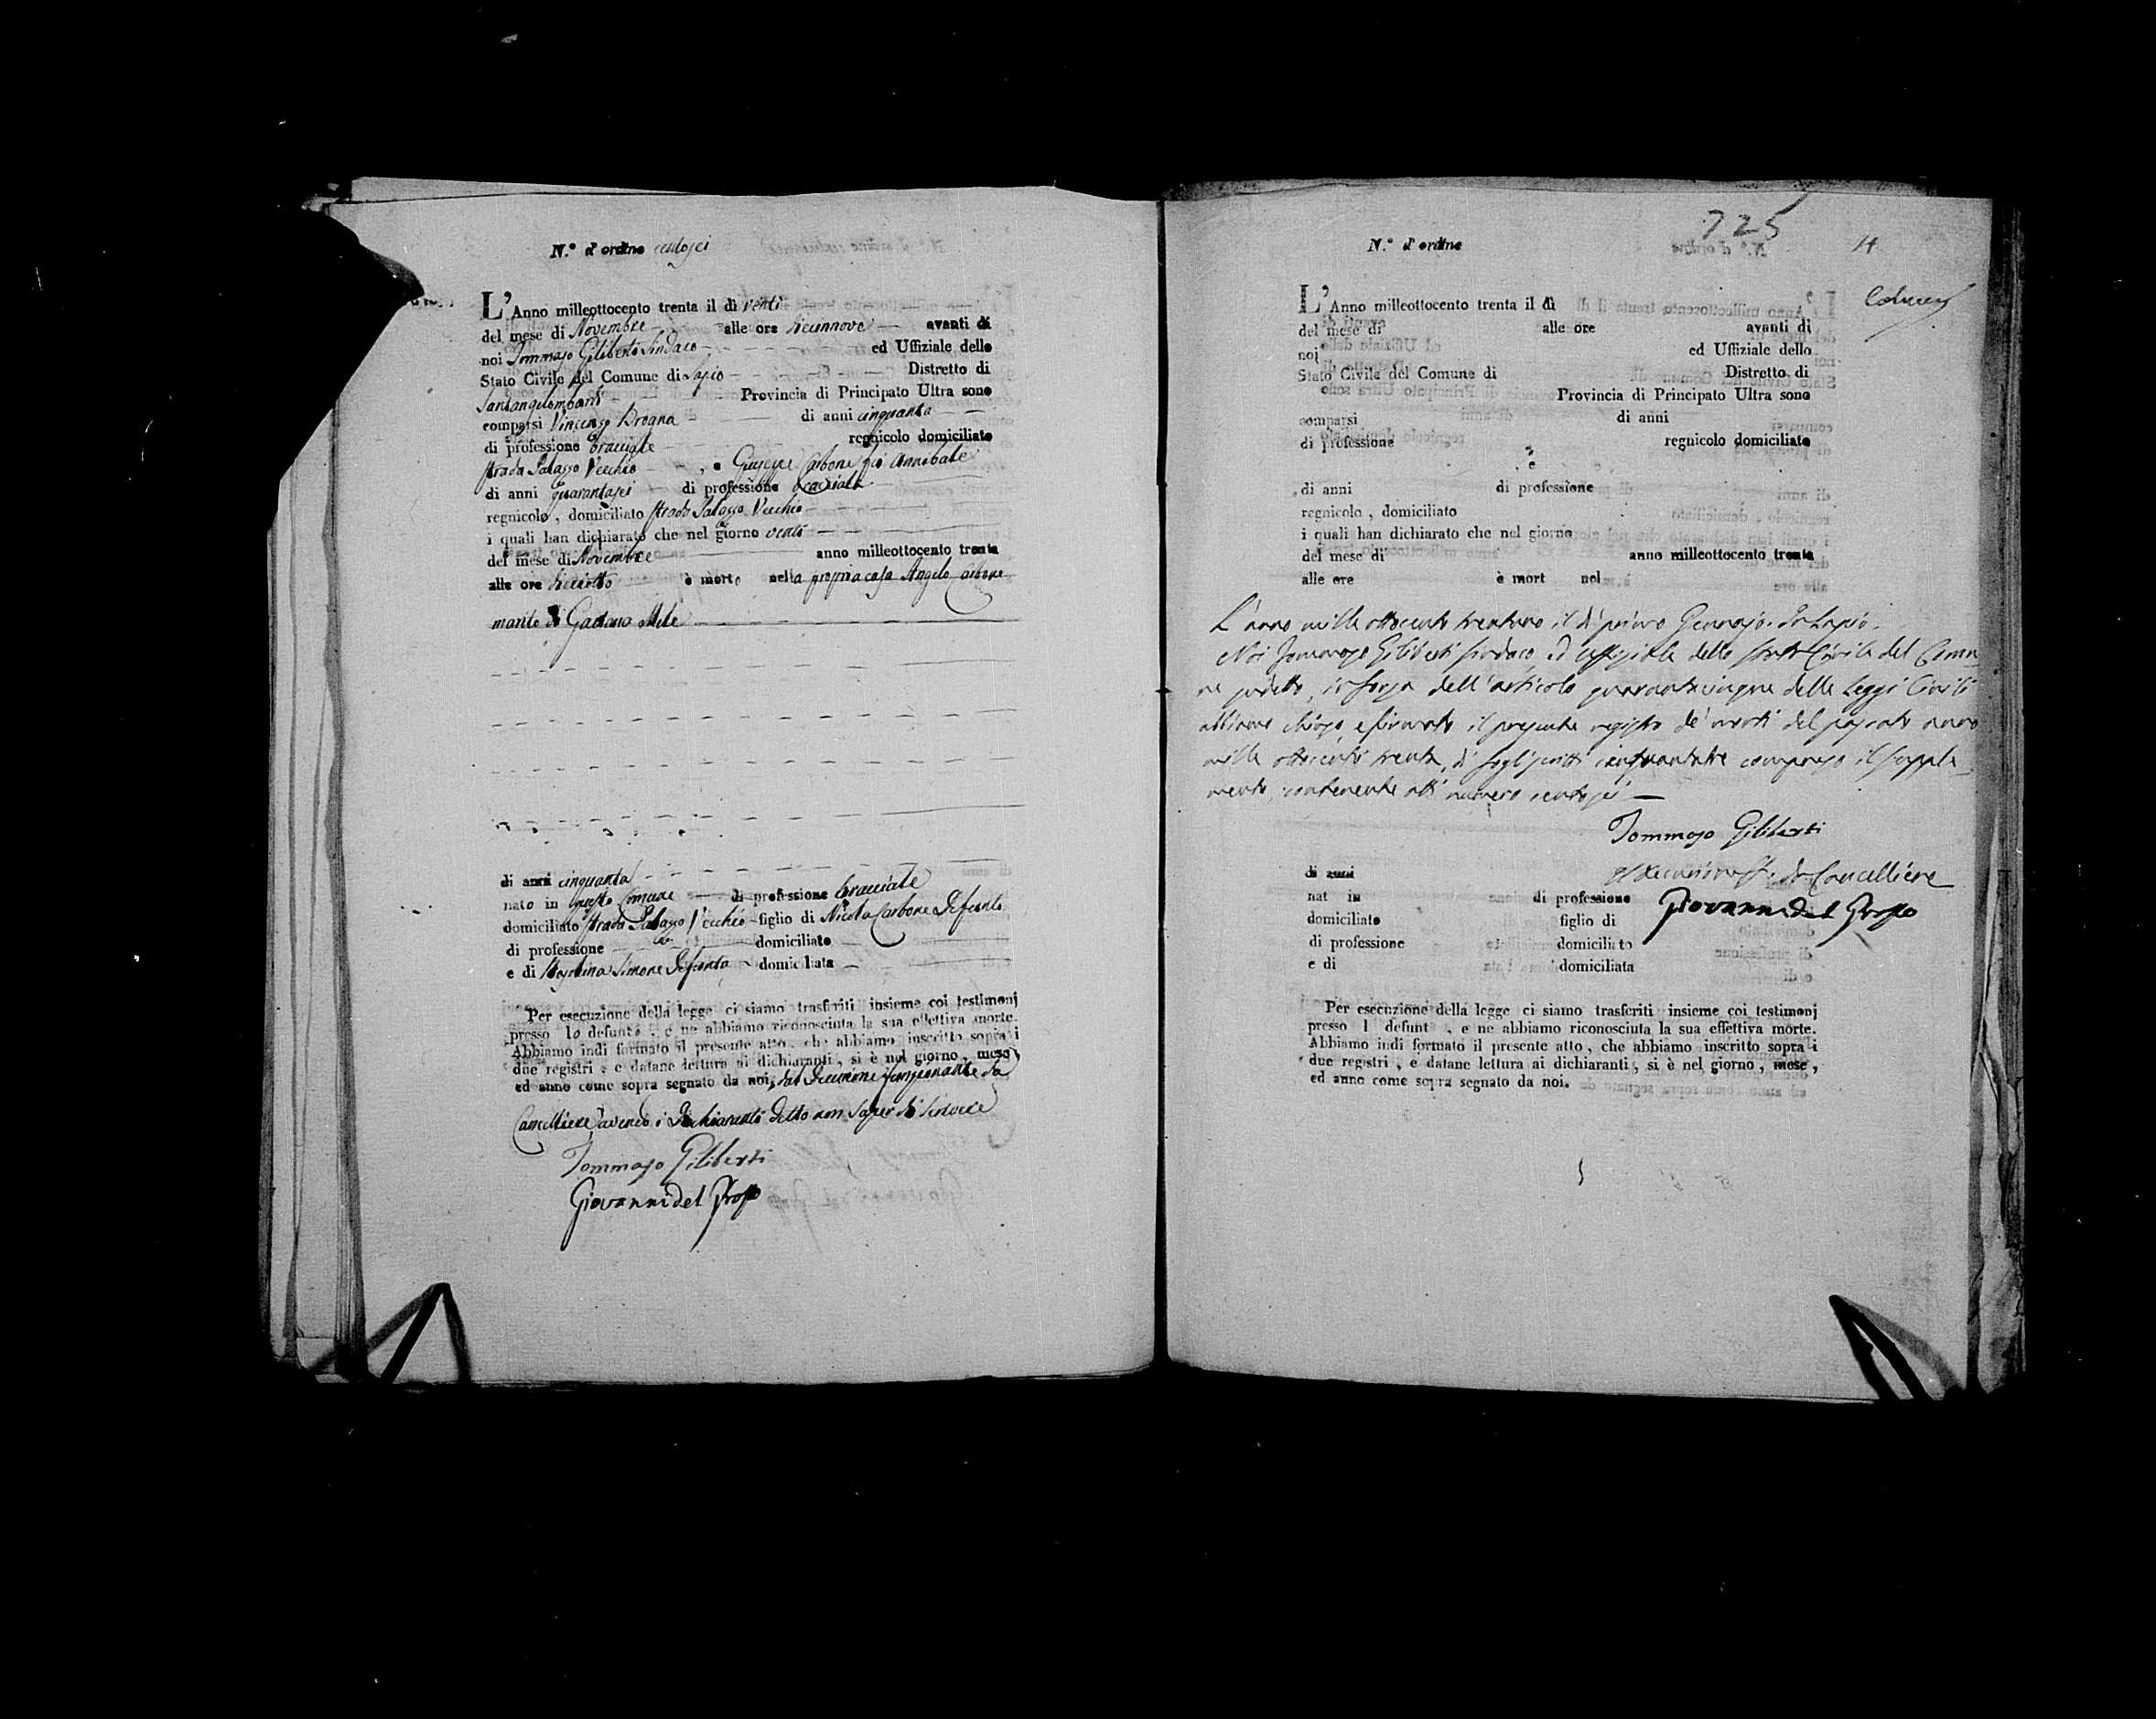 N.º d'ordine centosei
L'Anno milleottocento trenta il dì venti
del mese di Novembre alle ore diecinnove avanti di
noi Tommaso Giliberti Sindaco ed Uffiziale dello
Stato Civile del Comune di Lapio Distretto di
Santangelombardi Provincia di Principato Ultra sono
comparsi Vincenzo Brogna di anni cinquanta
di professione bracciale regnicolo domiciliato
strada Palazzo Vecchio , e Giuseppe Carbone fu Annibale
di anni quarantasei di professione bracciale
regnicolo , domiciliato strada Palazzo Vecchio
i quali han dichiarato che nel giorno venti
del mese di Novembre anno milleottocento trenta
alle ore dieciotto è morto nella propria casa Angelo Carbone
marito di Gaetana Mele
di anni cinquanta
nato in questo Comune di professione bracciale
domiciliato strada Palazzo Vecchio figlio di Nicola Carbone defunto
di professione domiciliato
e di Simone defunta domiciliata
Per esecuzione della legge ci siamo trasferiti insieme coi testimonj
presso lo defunto , e ne abbiamo riconosciuta la sua effettiva morte.
Abbiamo indi formato il presente atto , che abbiamo inscritto sopra i
due registri , e datane lettura ai dichiaranti , si è nel giorno , mese ,
ed anno come sopra segnato da noi, dal Decurione funzionante da
Cancelliere avendo i Dichiaranti detto non saper di scrivere
Tommaso Giliberti
Giovanni del Grosso
725
N.º d'ordine
L'Anno milleottocento trenta il dì
del mese di alle ore avanti di
noi ed Uffiziale dello
Stato Civile del Comune di Distretto di
Provincia di Principato Ultra sono
comparsi di anni
di professione regnicolo domiciliato
, e
di anni di professione
regnicolo , domiciliato
i quali han dichiarato che nel giorno
del mese di anno milleottocento trenta
alle ore è mort nel
L'anno mille ottocento trentuno il dì primo Gennajo. In Lapio.
Noi Tommaso Giliberti Sindaco, ed uffiziale dello Stato Civile del Comu-
ne sudetto, in forza dell'articolo quarantacinque delle Leggi Civili
abbiamo chiuso, e firmato il presente registro de' morti del passato anno
mille ottocento trenta, di fogli scritti cinquantatre compreso il supple-
mento, contenente atti numero centosei
Tommaso Giliberti
Il Decurione da Cancelliere
Giovanni del Grosso
di anni
nat in di professione
domiciliato figlio di
di professione domiciliato
e di domiciliata
Per esecuzione della legge ci siamo trasferiti insieme coi testimonj
presso l defunt , e ne abbiamo riconosciuta la sua effettiva morte.
Abbiamo indi formato il presente atto , che abbiamo inscritto sopra i
due registri , e datane lettura ai dichiaranti , si è nel giorno , mese ,
ed anno come sopra segnato da noi.